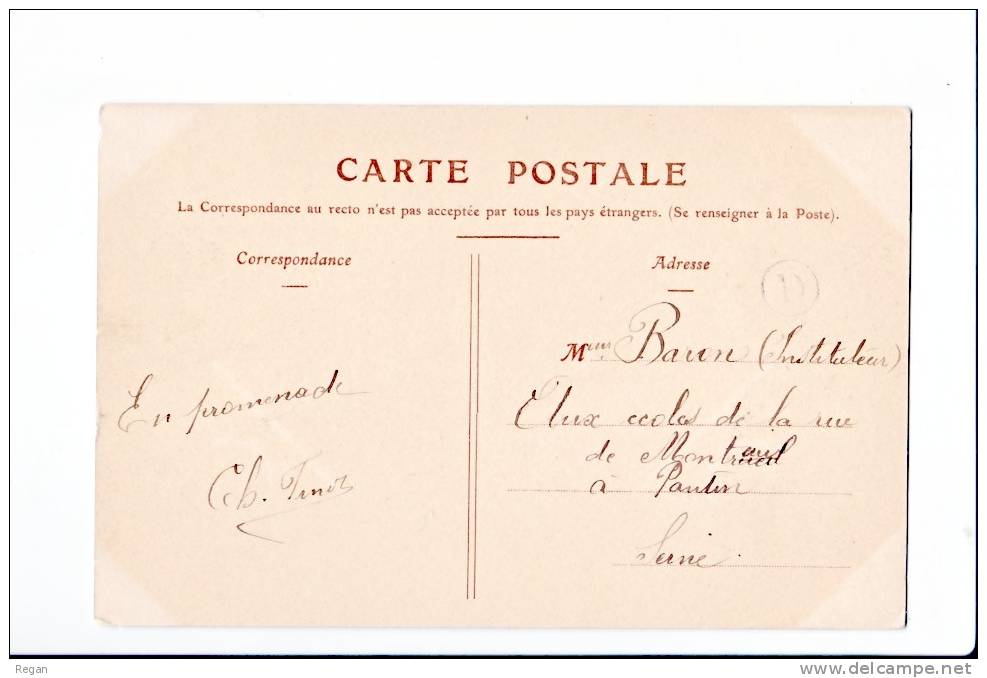 CARTE POSTALE
La Correspondance au recto n'est pas acceptée par tous les pays étrangers. (Se renseigner à la Poste).
Correspondance
En promenade
Ch. Tinot
Adresse
D
M Baron (Instituteur)
Aux ecoles de la rue
de Montreuil
à Pantin
Seine
Regan
www.delcampe.net